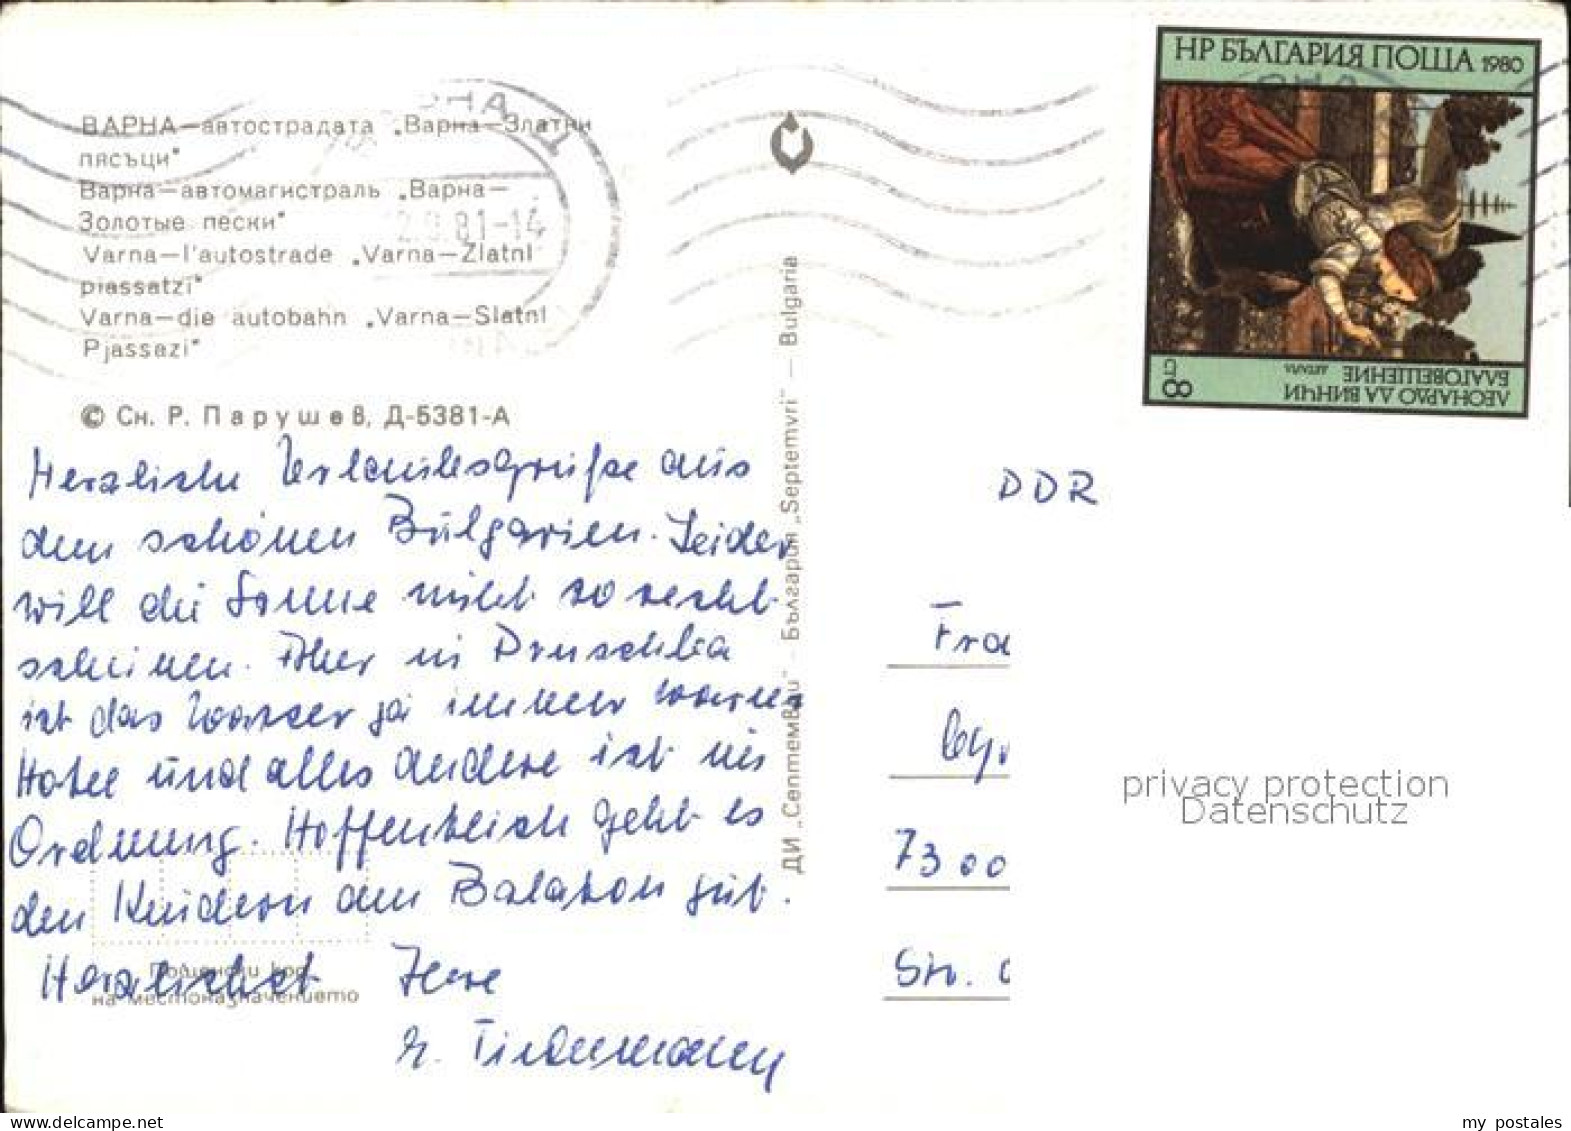 ВАРНА—автострадата „Варна—Златни
пясъци"
Варна—автомагистраль „Варна—
Золотые пески"
Varna—l'autostrade „Varna—Zlatni
piassatzi"
Varna—die autobahn „Varna—Slatni
Pjassazi"
© Сн. Р. Парушев, Д-5381-А
Herzliche Urlaubsgrüße aus
dem schönen Bulgarien. Leider
will die Sonne nicht so recht
scheinen. Aber in Druschba
ist das Wasser ja immer warm
Hotel und alles andere ist in
Ordnung. Hoffentlich geht es
den Kindern am Balaton gut.
Herzlichst Ihre
Tiedemann
Пощенски код
на местоназначението
2.9.81-14
ДИ „Септември" — България „Septemvri" — Bulgaria
НР БЪЛГАРИЯ ПОЩА 1980
ЛЕОНАРДО ДА ВИНЧИ
БЛАГОВЕЩЕНИЕ ДЕТАЙЛ
8 СТ
DDR
Fra
7300
Str.
privacy protection
Datenschutz
my postales
www.delcampe.net